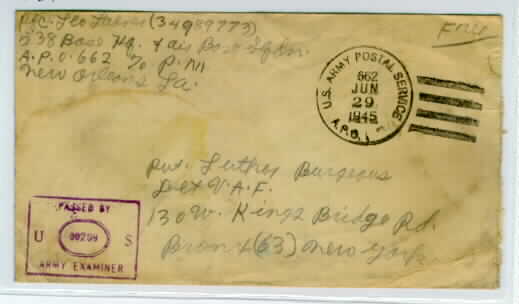 Pfc. Leo (34989773)
338 Base Hq. & air Base Sqdn.
A.P.O. 662 c/o P.M
New Orleans La.
Free
U.S. ARMY POSTAL SERVICE
662
JUN
29
1945
A.P.O.
Pvt. Luther Burgeous
Det V.A.F.
130 W. Kings Bridge Rd.
Bronx (63) New York
PASSED BY
U 00209 S
ARMY EXAMINER